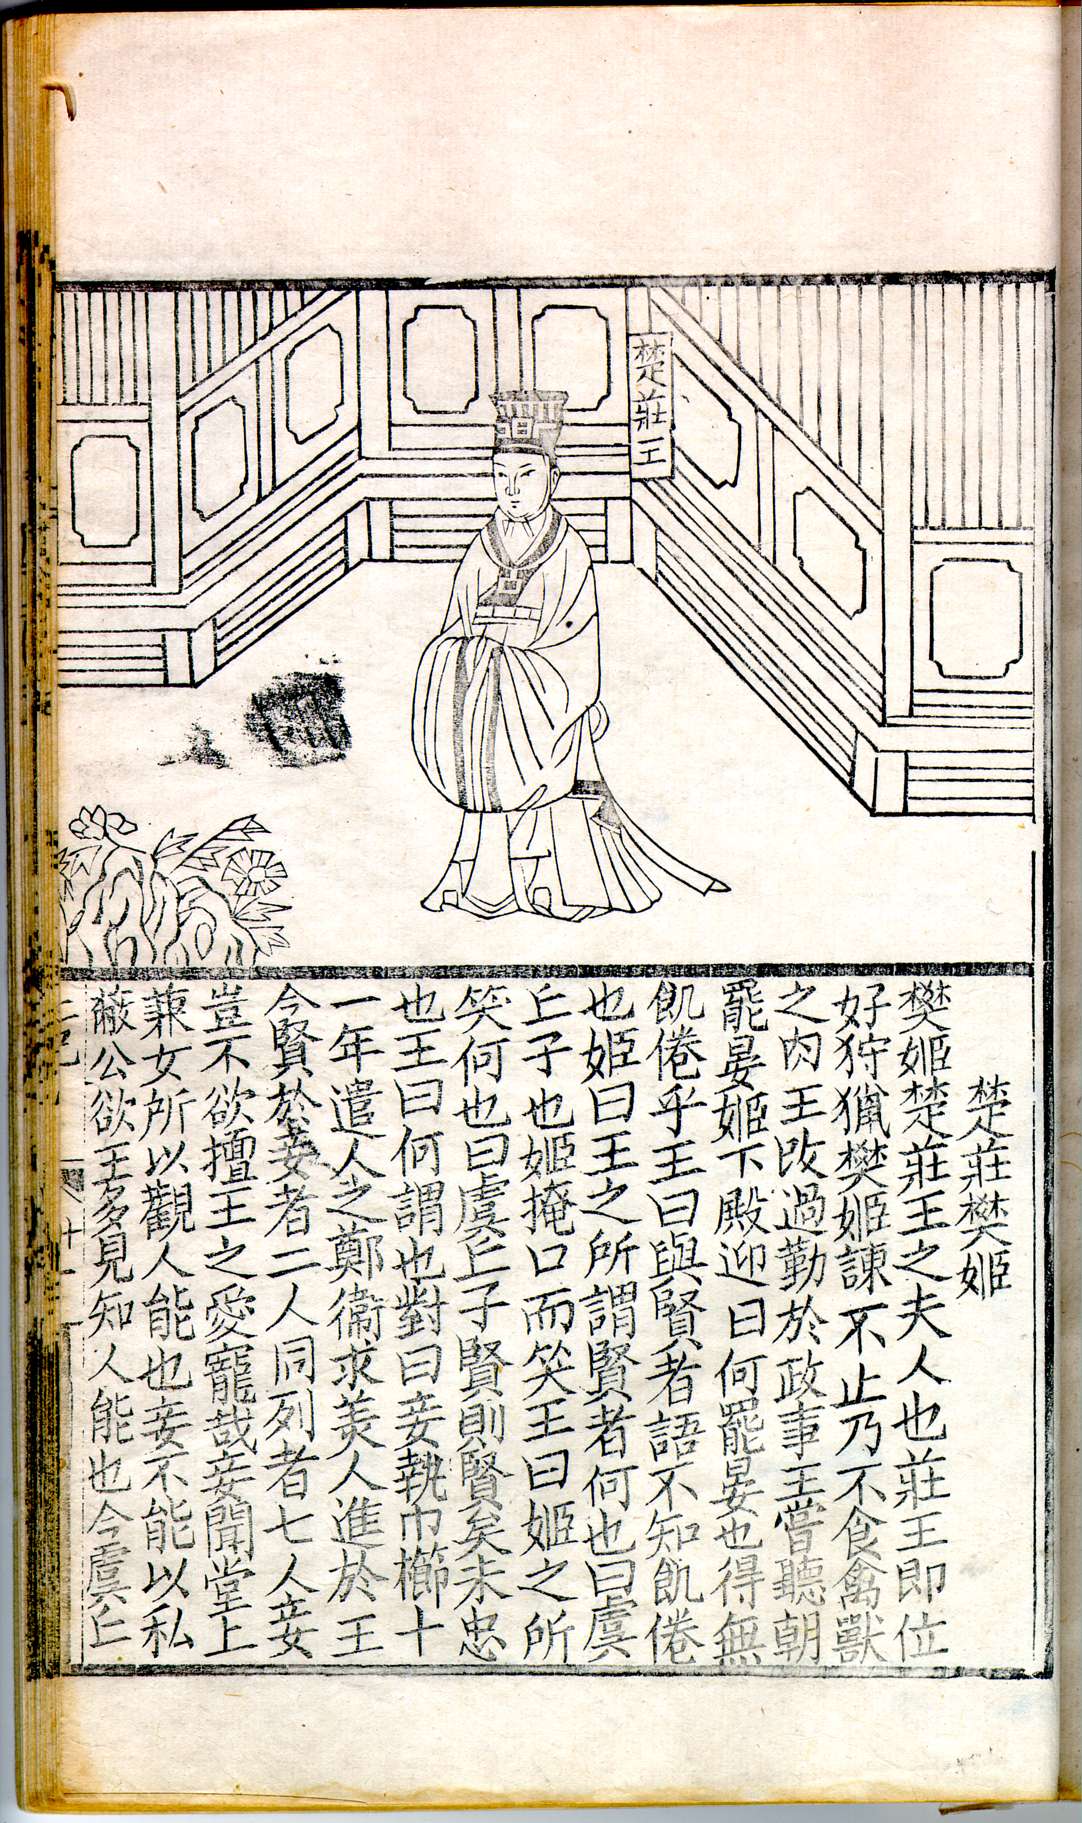 楚莊王
楚莊樊姬
樊姬楚莊王之夫人也莊王即位
好狩獵樊姬諫不止乃不食禽獸
之肉王改過勤於政事王嘗聽朝
罷晏姬下殿迎曰何罷晏也得無
飢倦乎王曰與賢者語不知飢倦
也姬曰王之所謂賢者何也曰虞
丘子也姬掩口而笑王曰姬之所
笑何也曰虞丘子賢則賢矣未忠
也王曰何謂也對曰妾執巾櫛十
一年遣人之鄭衞求美人進於王
今賢於妾者二人同列者七人妾
豈不欲擅王之愛寵哉妾聞堂上
兼女所以觀人能也妾不能以私
蔽公欲王多見知人能也今虞丘
十一